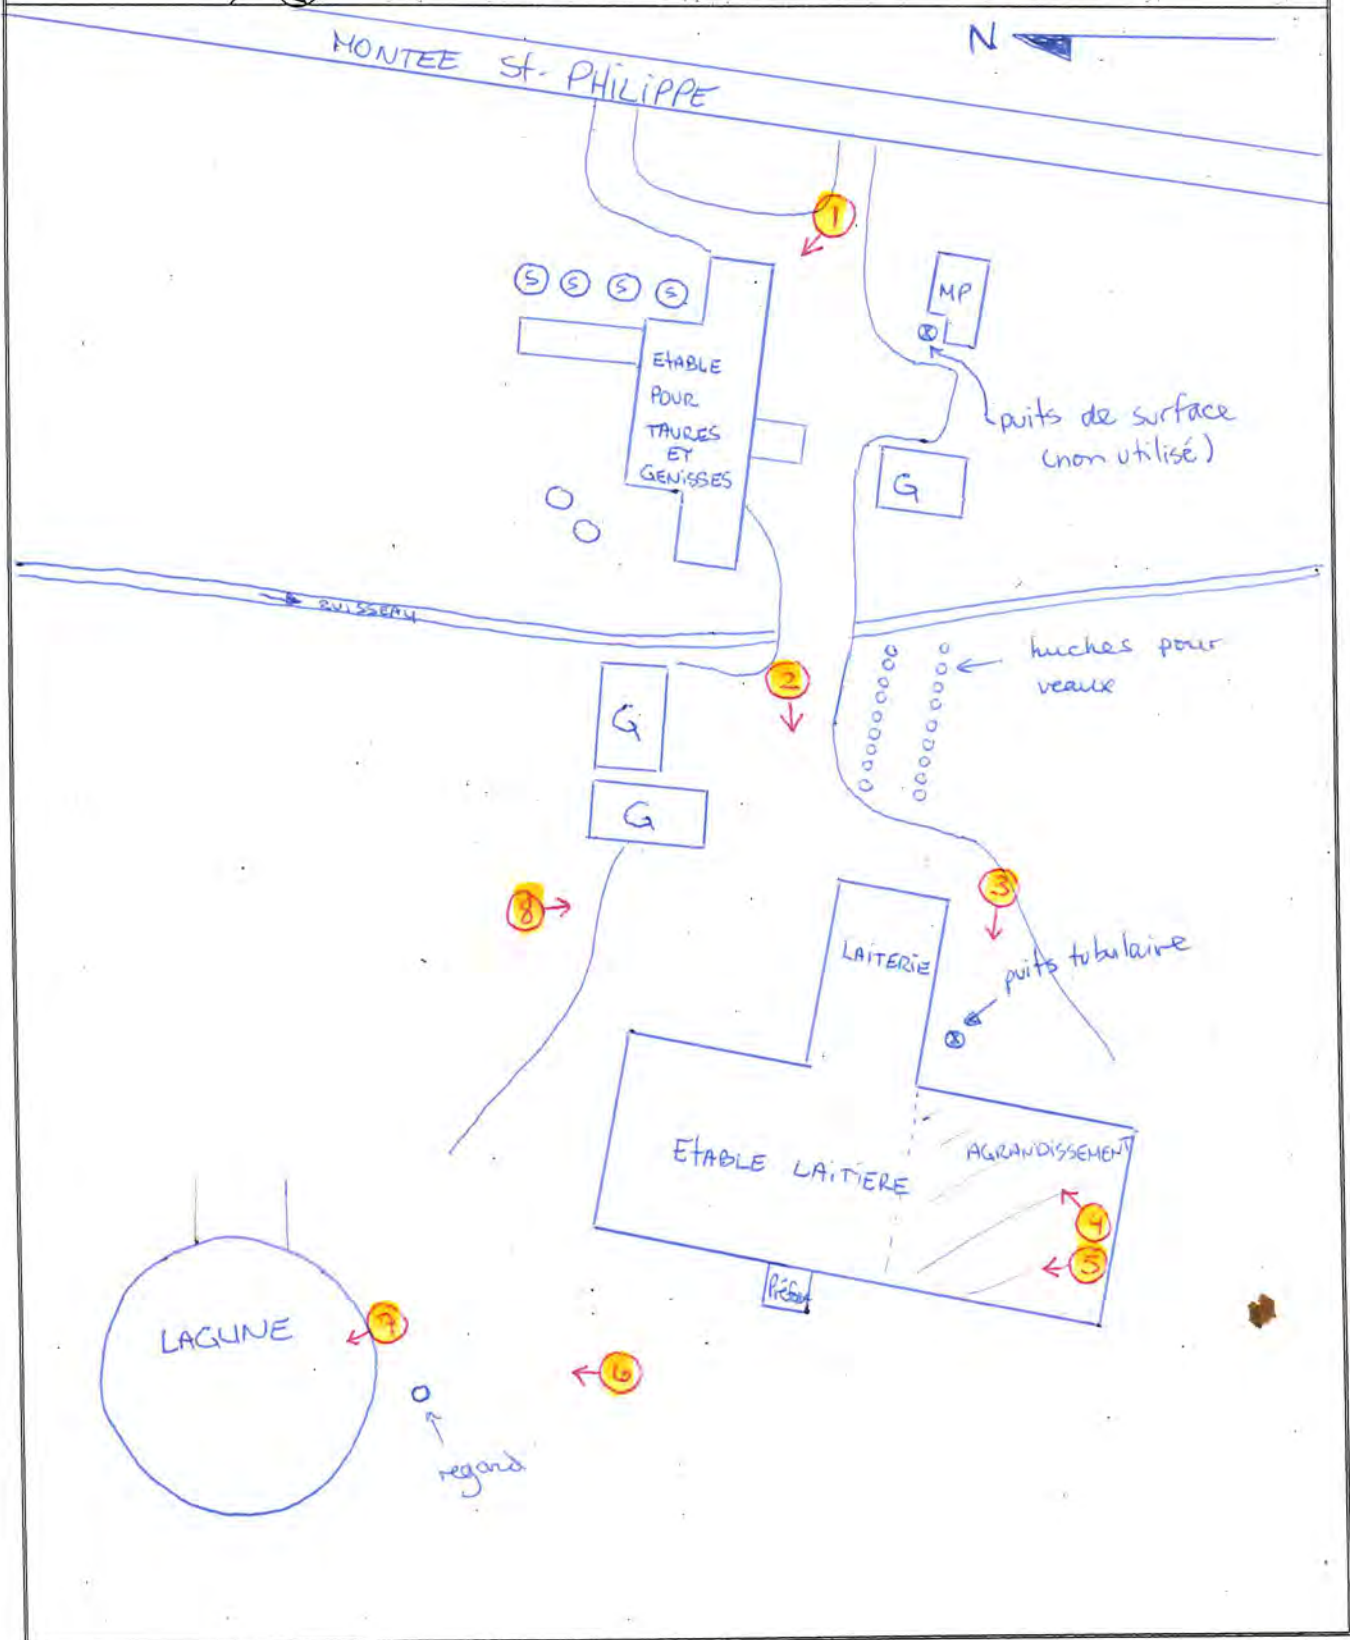 N
MONTEE St. PHILIPPE
1
S S S S
MP
EtABLE
POUR
TAURES
ET
GENISSES
puits de surface
(non utilisé)
G
RUISSEAU
huches pour
veaux
2
G
G
3
8
LAITERIE
puits tubulaire
EtABLE LAITIERE
AGRANDISSEMENT
4
5
LAGUNE
7
6
regard